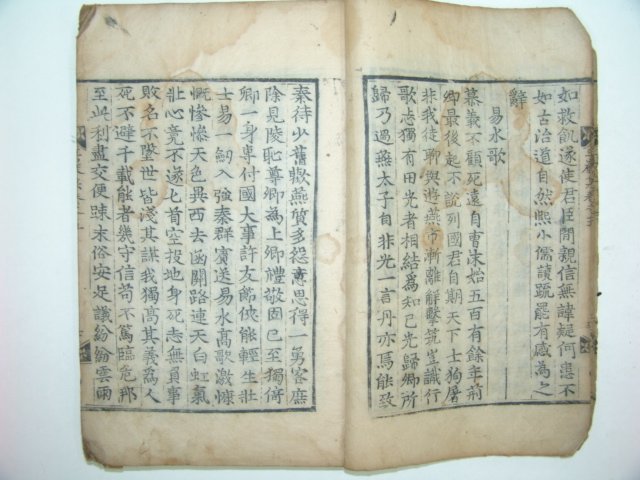 如救飢遂使君臣間視信無諱疑何患不
如古治道自然熙小儒讀䟽罷有感為之
辭
易水歌
慕義不顧死遠自曹沫始五百有餘年荊
卿最後起不說列國君自期天下士狗屠
非我徒聊與遊燕市漸離解擊筑豈識行
歌志獨有田光者相結為知己光歸卿所
歸乃遇燕太子自非光一言丹亦焉能致
秦待少舊歡燕質多怨意思得一勇客庶
除見陵恥尊卿為上卿禮敬固已至獨倚
卿一身專付國大事許友節俠能輕生壯
士易一釰入強秦群賓送易水高歌激慷
慨慘慘天色異西去函關路連天白虹氣
壯心竟不遂匕首空投地身死志無負事
敗名不墜世皆淺其謀我獨高其義為人
死不避千載能者幾守信苟不篤臨危那
至此利盡交便踈末俗安足議紛紛雲雨